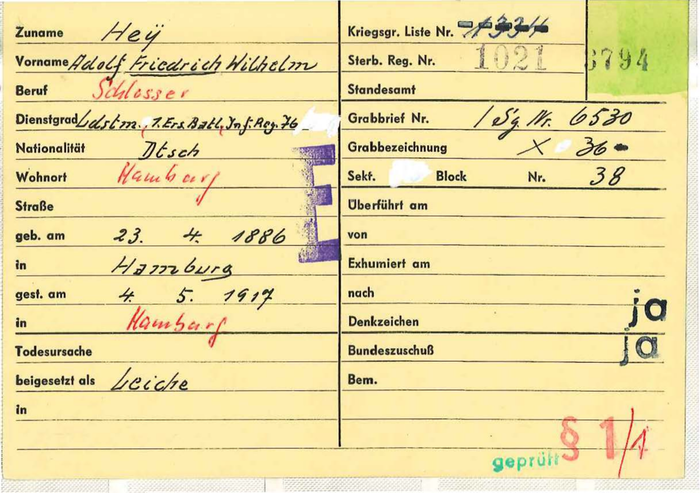 Zuname Heÿ
Vorname Adolf Friedrich Wilhelm
Beruf Schlosser
Dienstgrad Ldstm. 1. Ers. Batl. Inf. Reg. 76
Nationalität Dtsch
Wohnort Hamburg
Straße
geb. am 23. 4. 1886
in Hamburg
gest. am 4. 5. 1917
in Hamburg
Todesursache
beigesetzt als Leiche
in
E
Kriegsgr. Liste Nr. 1334
Sterb. Reg. Nr. 1021 3794
Standesamt
Grabbrief Nr. / Sg. Nr. 6530
Grabbezeichnung X 36
Sekt. Block Nr. 38
Überführt am
von
Exhumiert am
nach
Denkzeichen ja
Bundeszuschuß ja
Bem.
geprüft § 1/1